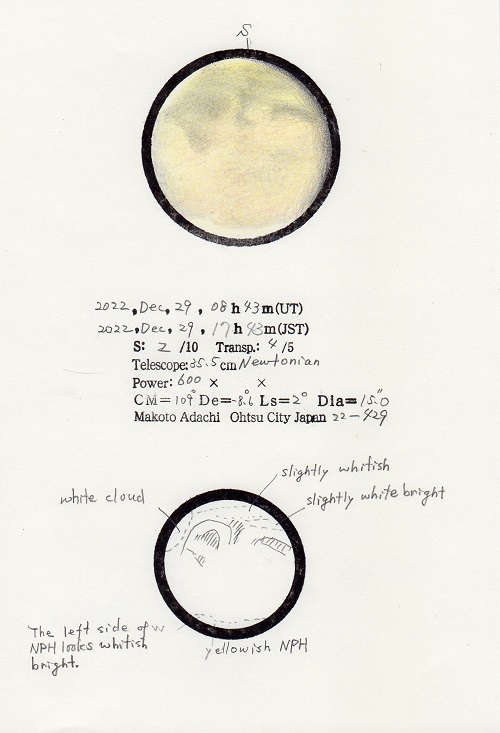 S
2022, Dec, 29, 08h43m(UT)
2022, Dec, 29, 17h43m(JST)
S: 2 /10 Transp.: 4 /5
Telescope: 35.5cm Newtonian
Power: 600 × ×
CM=109° De=-8.6° Ls=2° Dia=15.″0
Makoto Adachi Ohtsu City Japan 22-429
slightly whitish
white cloud
slightly white bright
The left side of w
NPH looks whitish
bright.
yellowish NPH